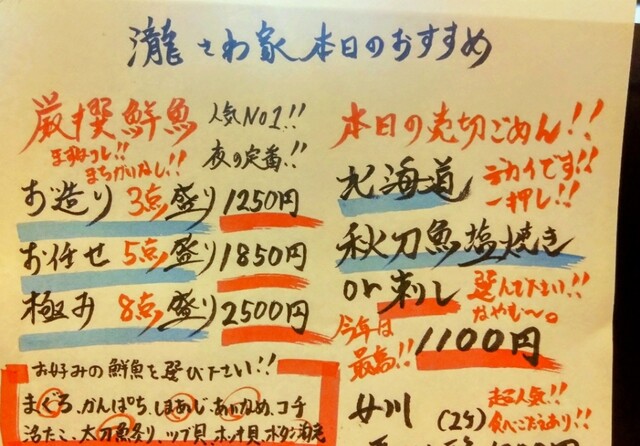 瀧さわ家 本日のおすすめ
厳撰鮮魚
人気NO1!!
夜の定番!!
まずはコレ!!
まちがいなし!!
お造り3点盛り 1250円
お任せ5点盛り 1850円
極み8点盛り 2500円
お好みの鮮魚を選び下さい!!
まぐろ、かんぱち、しまあじ、あいなめ、コチ
活たこ、太刀魚炙り、ツブ貝、ホッキ貝、ホタテ
本日の売切ごめん!!
北海道
デカイです!!
一押し!!
秋刀魚塩焼き
or刺し
選んで下さい!!
なやむ〜。
今年は
最高!!
1100円
女川
(2ケ)
超人気!!
食べごたえあり!!